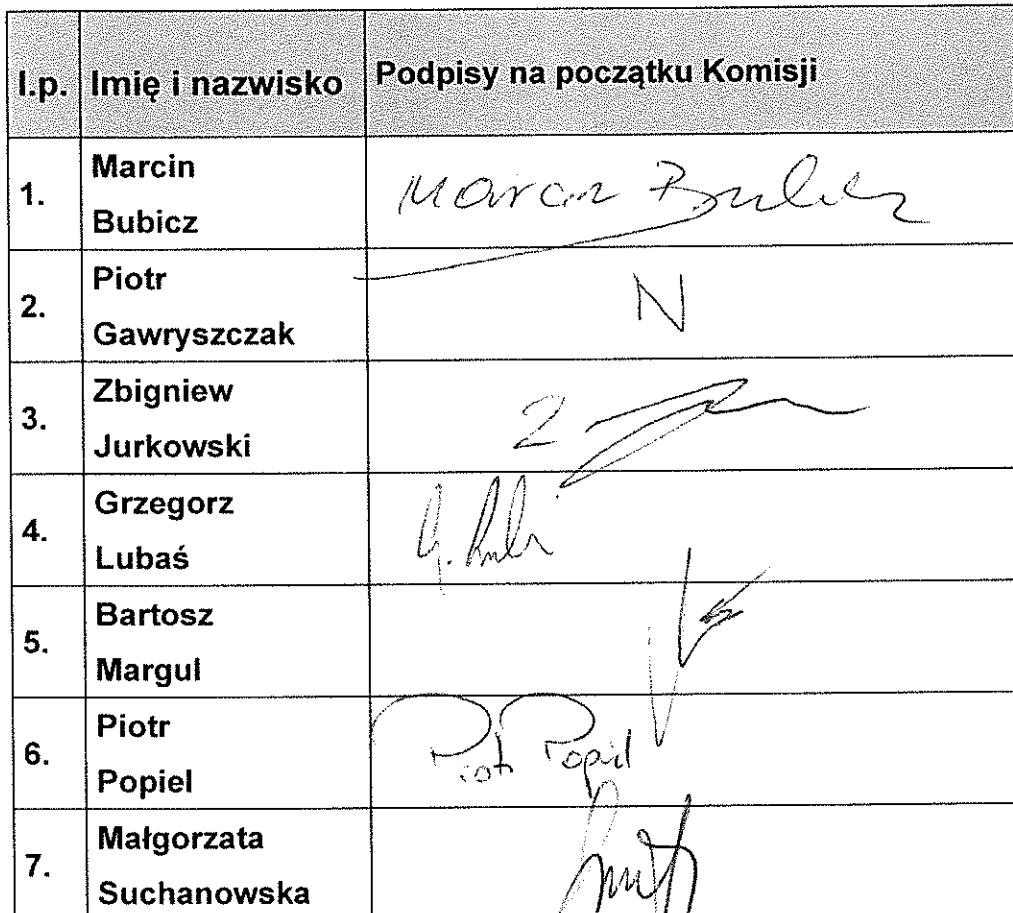 l.p. Imię i nazwisko Podpisy na początku Komisji
1. Marcin Bubicz Marcin Bubicz
2. Piotr Gawryszczak N
3. Zbigniew Jurkowski Z
4. Grzegorz Lubaś G.
5. Bartosz Margul
6. Piotr Popiel Piotr Popiel
7. Małgorzata Suchanowska